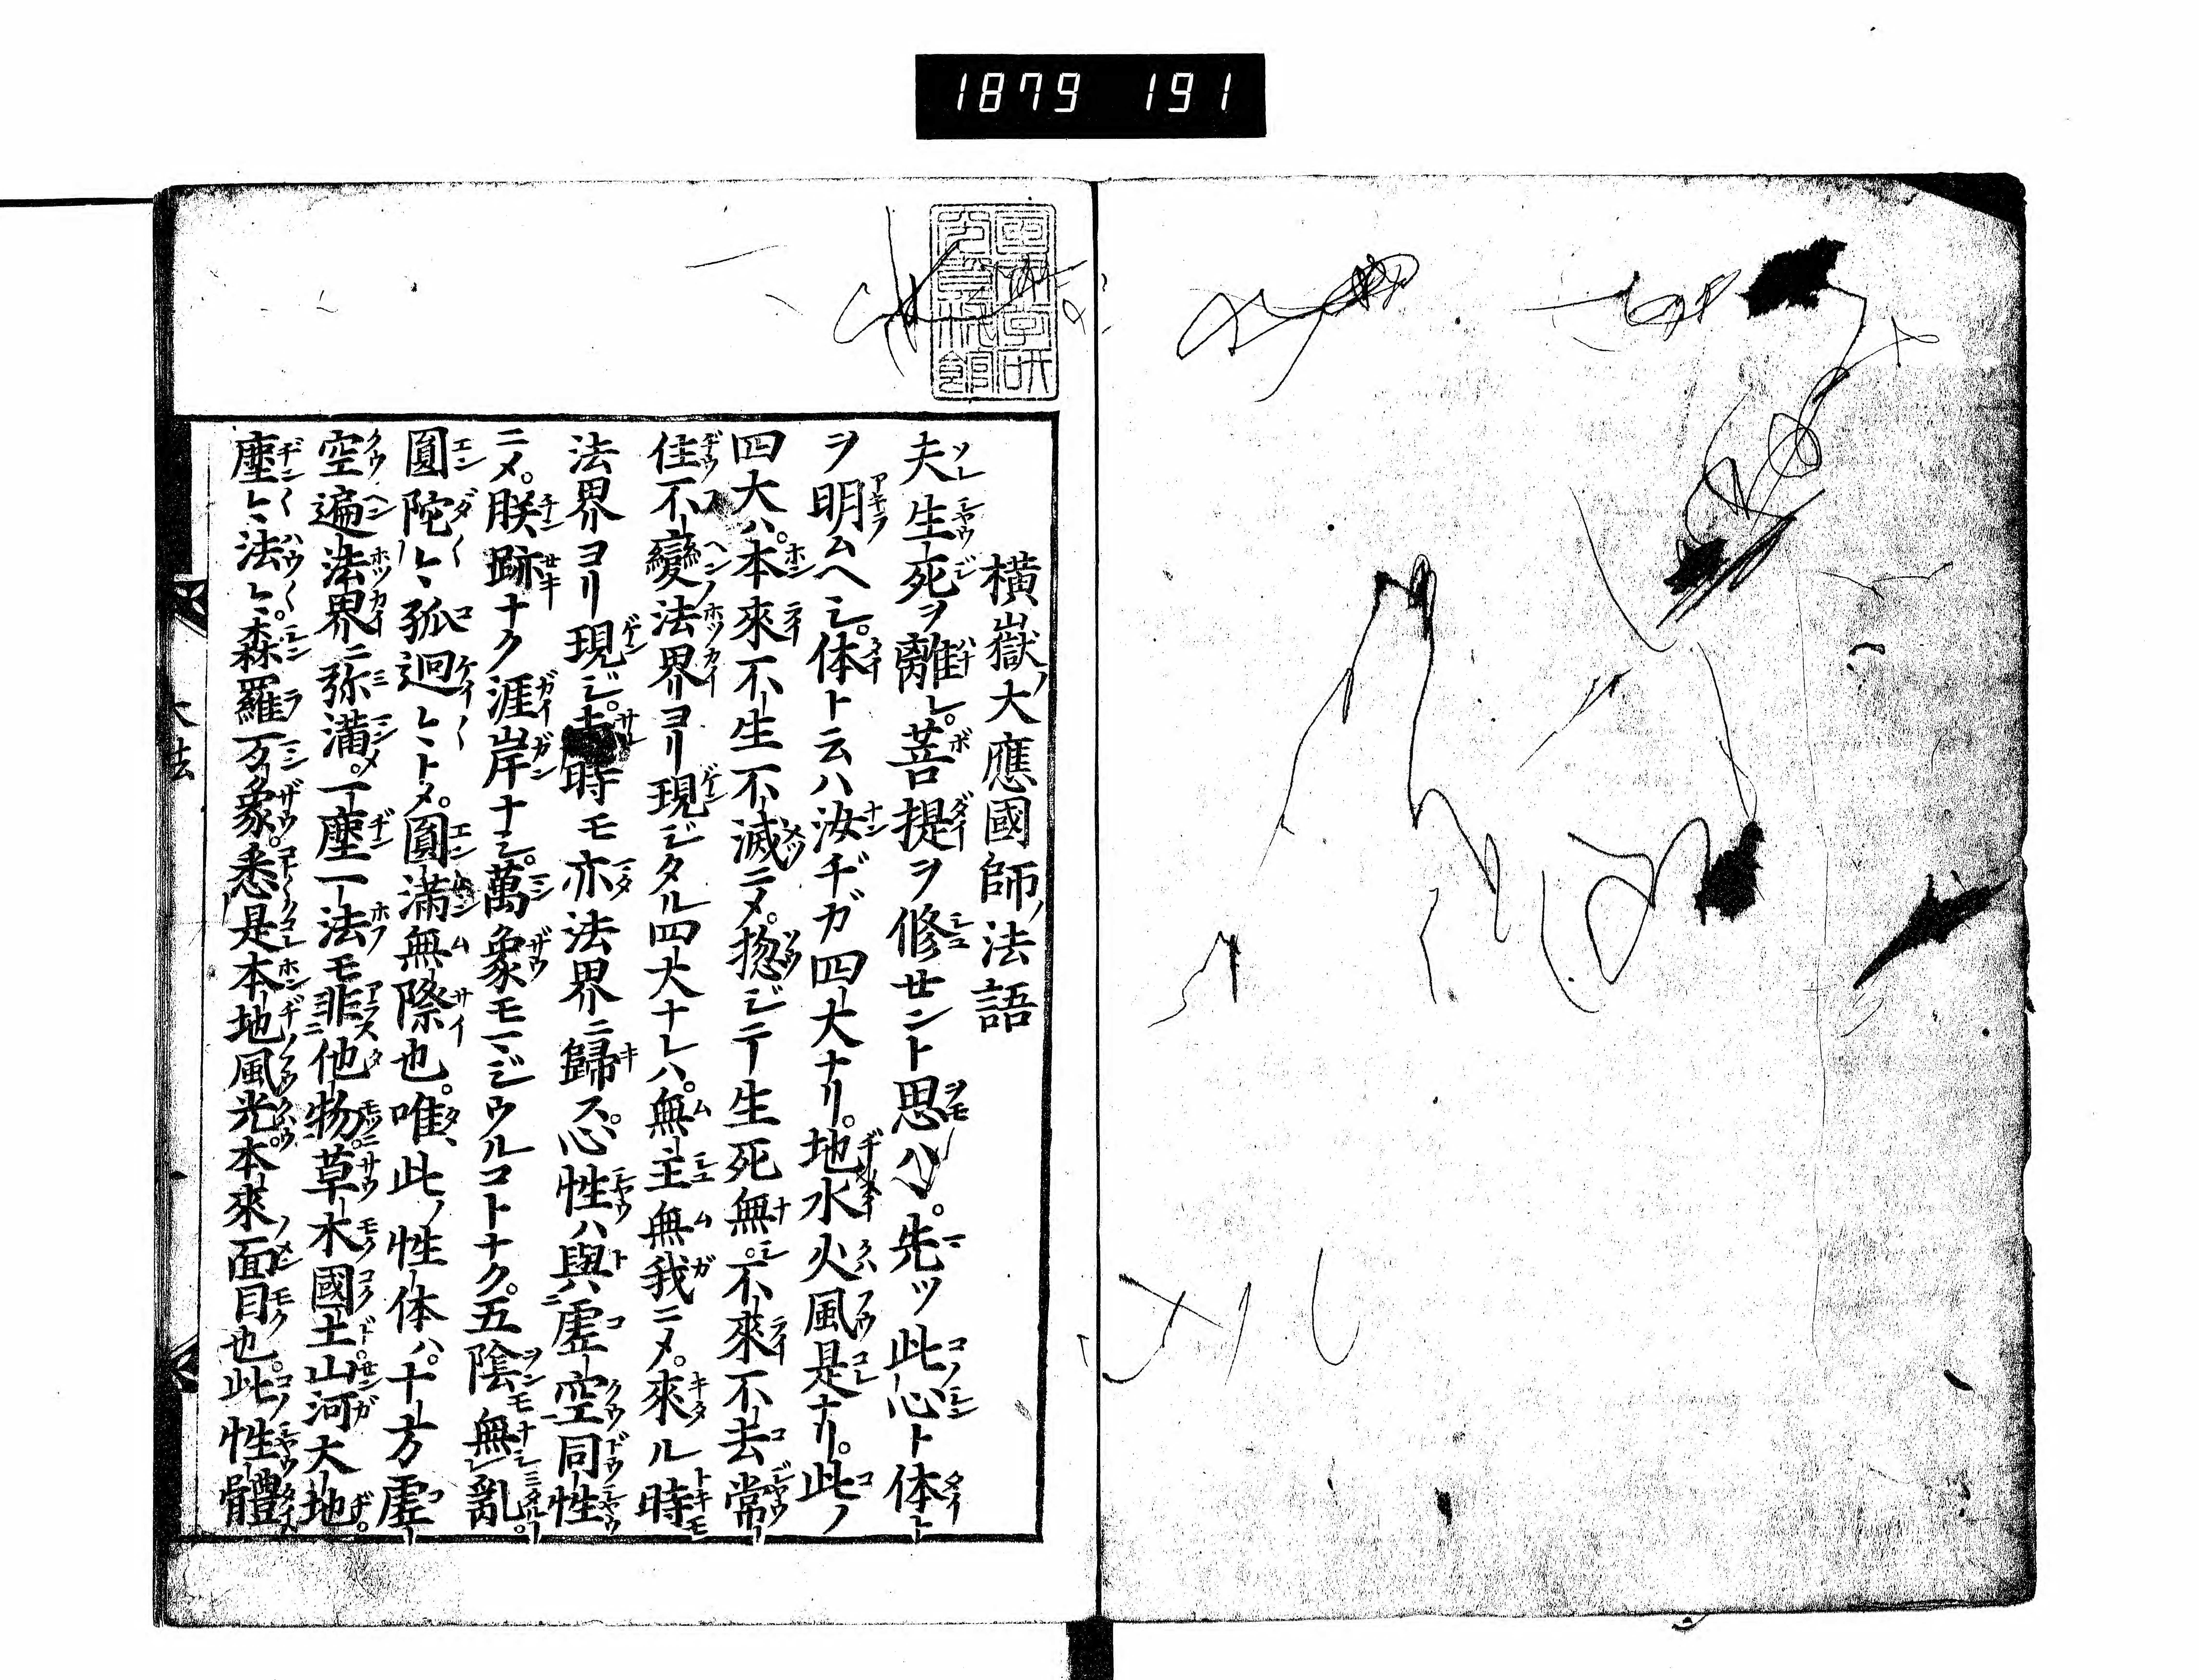 1879 191
横嶽ノ大應國師ノ法語
夫生死ヲ離レ。菩提ヲ修セント思ハヾ。先ツ此心ト体ト
ヲ明ムヘシ。体ト云ハ汝ヂガ四大ナリ。地水火風是ナリ。此ノ
四大ハ。本來不生不滅ニメ。惣ジテ生死無シ。不來不去常
住不變法界ヨリ現ジタル四大ナレハ。無主無我ニメ。來ル時
法界ヨリ現ジ。去時モ亦法界ニ歸ス。心性ハ與虚空同性
ニメ。朕跡ナク涯岸ナシ。萬象モマジウルコトナク。五陰無乱。
圓陀々孤迥々トメ。圓滿無際也。唯此ノ性体ハ。十方虚
空遍法界ニ弥滿メ。一塵一法モ非他物。草木國土。山河大地。
塵々法々。森羅万象。悉是本地風光。本來面目也。此性體